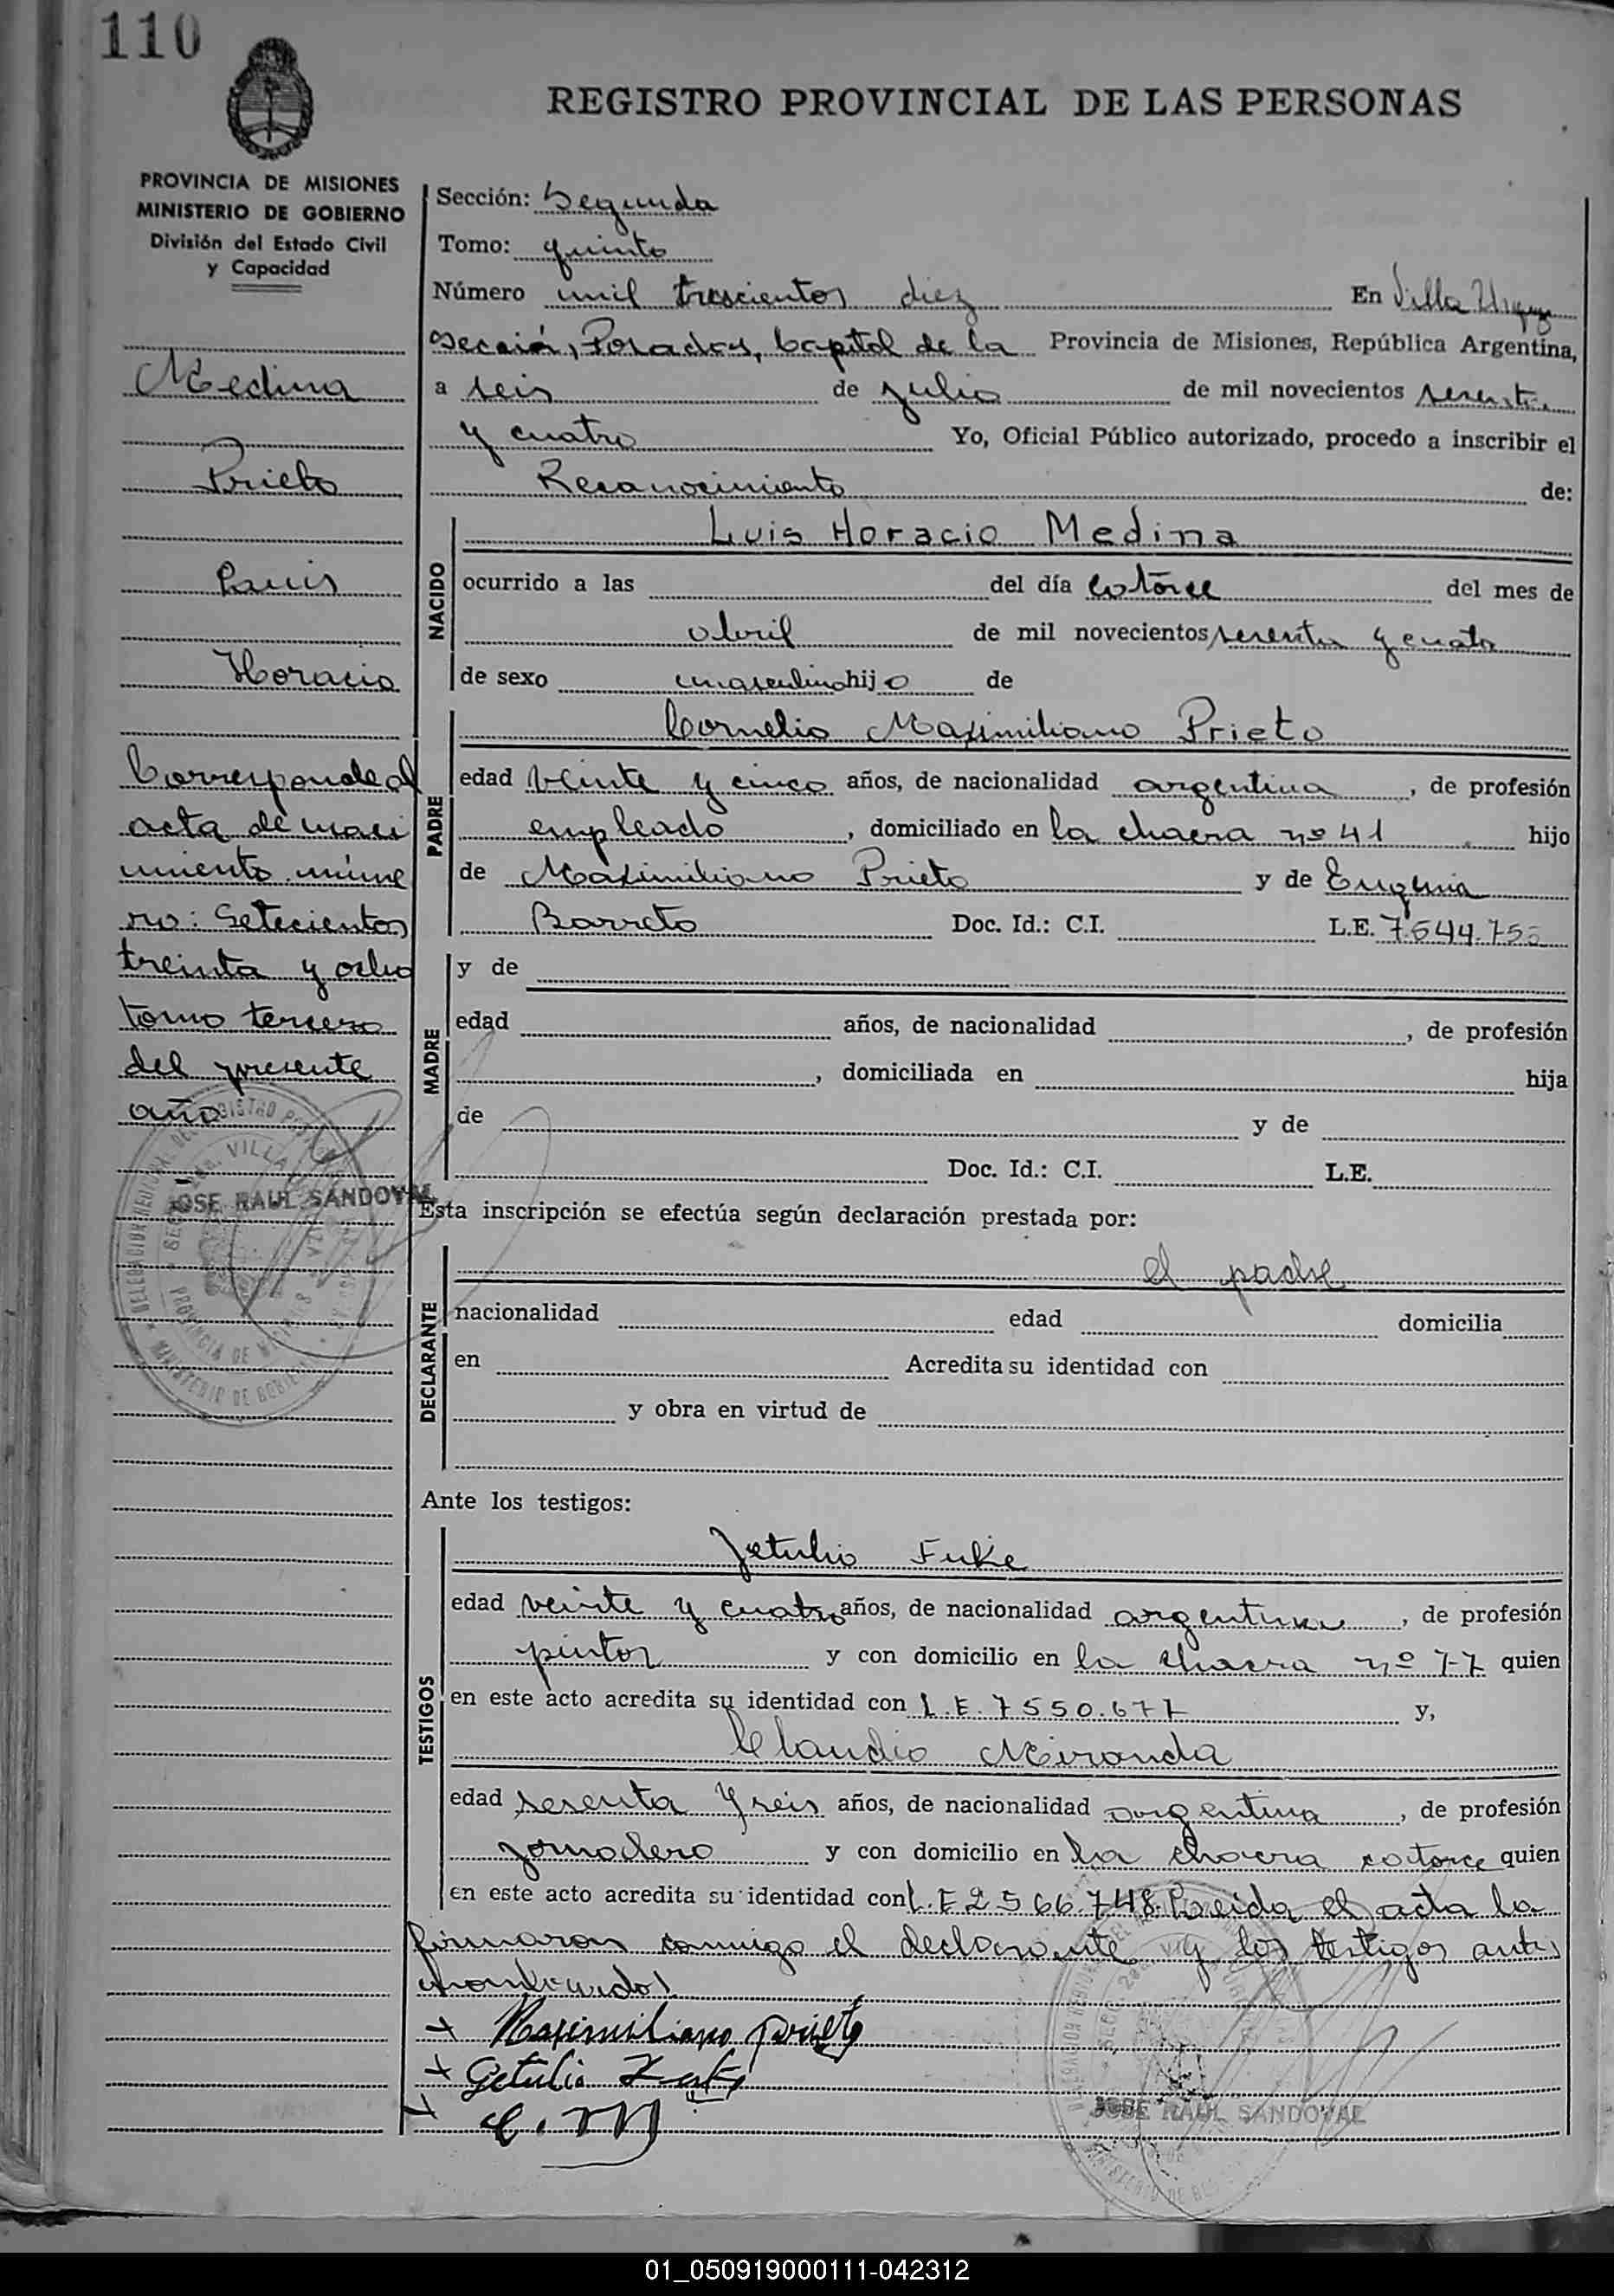 110
REGISTRO PROVINCIAL DE LAS PERSONAS
PROVINCIA DE MISIONES
MINISTERIO DE GOBIERNO
División del Estado Civil
y Capacidad
Medina
Prieto
Luis
Horacio
Corresponde al
acta de naci
miento núme
ro: Setecientos
treinta y ocho
tomo tercero
del presente
año
JOSE RAUL SANDOVAL
Sección: Segunda
Tomo: quinto
Número mil trescientos diez En Villa
Sección, Posadas, Capital de la Provincia de Misiones, República Argentina,
a seis de julio de mil novecientos sesenta
y cuatro Yo, Oficial Público autorizado, procedo a inscribir el
Reconocimiento de:
NACIDO
Luis Horacio Medina
ocurrido a las del día catorce del mes de
abril de mil novecientos sesenta y cuatro
de sexo masculino hijo de
PADRE
Cornelio Maximiliano Prieto
edad veinte y cinco años, de nacionalidad argentina, de profesión
empleado, domiciliado en la chacra nº 41 hijo
de Maximiliano Prieto y de Eugenia
Barreto Doc. Id.: C.I. L.E.
MADRE
y de
edad años, de nacionalidad , de profesión
, domiciliada en hija
de y de
Doc. Id.: C.I. L.E.
Esta inscripción se efectúa según declaración prestada por:
DECLARANTE
el padre
nacionalidad edad domicilia
en Acredita su identidad con
y obra en virtud de
Ante los testigos:
TESTIGOS
Jetulio Fuke
edad veinte y cuatro años, de nacionalidad argentina, de profesión
pintor y con domicilio en la chacra nº 77 quien
en este acto acredita su identidad con L.E. 7550.677 y,
Claudio Miranda
edad sesenta y seis años, de nacionalidad argentina, de profesión
jornalero y con domicilio en la chacra catorce quien
en este acto acredita su identidad con L.E 2566.748. Leida el acta la
firmaron conmigo el declarante y los testigos ante
nombrados
x Maximiliano prieto
x Getulio
x C. M
JOSE RAUL SANDOVAL
01_050919000111-042312